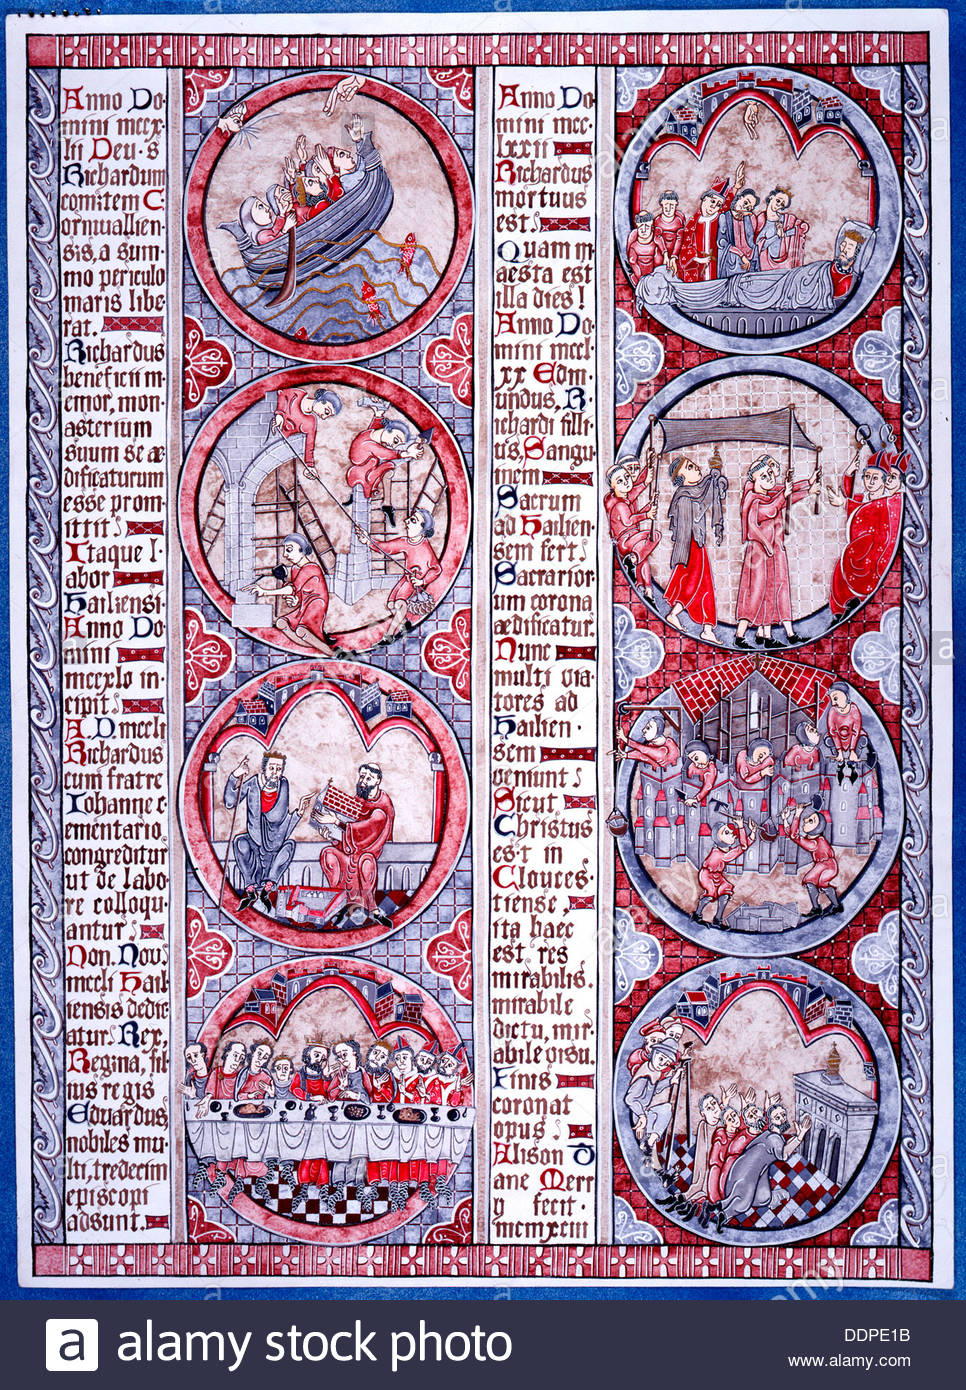 Anno Do·
mini mccx·
lii Deu·s
Richardum
comitem C·
ornwallien·
sis, a sum·
mo periculo
maris libe·
rat.
Richardus
beneficii m·
emor, mon·
asterium
suum se æ·
dificaturum
esse prom·
ittit:
Itaque l·
abor
Hailiensi·
Anno Do·
mini
mccxlo in·
cipit:
A.D. mccli
Richardus
cum fratre
Iohanne c·
ementario
congreditur
ut de labo·
re colloqu·
antur:
Non. Nov.
mccli Hail·
iensis dedic·
atur: Rex,
Regina, fil·
ius regis
Eduardus,
nobiles mu·
lti, tredecim
episcopi
adsunt.
Anno Do·
mini mcc·
lxxii
Richardus
mortuus
est.
Quam m·
aesta est
illa dies!
Anno Do·
mini mccl·
xx Edm·
undus, R·
ichardi fili·
us, Sangu·
inem
Sacrum
ad Hailien·
sem fert:
Sacrarior·
um corona
ædificatur.
Nunc
multi via·
tores ad
Hailien·
sem
veniunt:
Sicut
Christus
est in
Clouces·
tiense,
ita haec
est res
mirabilis.
mirabile
dictu, mir·
abile visu.
Finis
coronat
opus.
Alison D·
ane Merr·
y fecit·
mcmxciii
alamy stock photo
DDPE1B
www.alamy.com